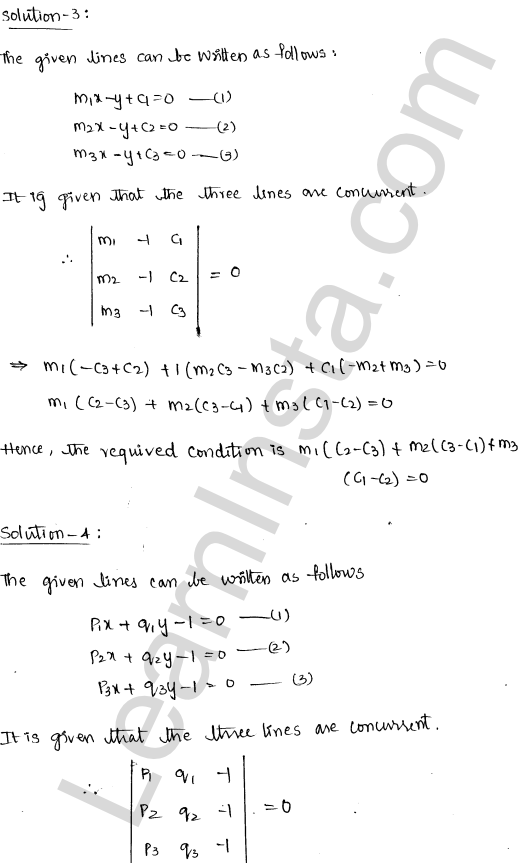 Solution-3:
The given lines can be written as follows:
m1x-y+c1=0 —(1)
m2x-y+c2=0 —(2)
m3x-y+c3=0 —(3)
It is given that the three lines are concurrent.
∴ | m1 -1 c1 |
| m2 -1 c2 | = 0
| m3 -1 c3 |
⇒ m1(-c3+c2) + 1(m2c3-m3c2) + c1(-m2+m3)=0
m1(c2-c3) + m2(c3-c1) + m3(c1-c2)=0
Hence, the required condition is m1(c2-c3) + m2(c3-c1)+m3
(c1-c2)=0
Solution-4:
The given lines can be written as follows
P1x + q1y-1=0 —(1)
P2x + q2y-1=0 —(2)
P3x + q3y-1=0 —(3)
It is given that the three lines are concurrent.
∴ | P1 q1 -1 |
| P2 q2 -1 | =0
| P3 q3 -1 |
LearnInsta.com